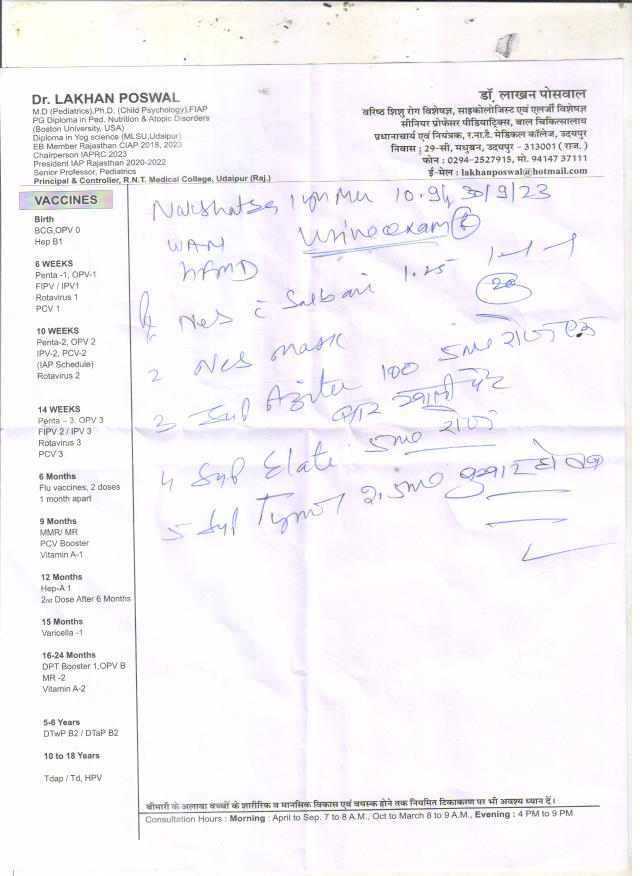 Dr. LAKHAN POSWAL
M.D (Pediatrics),Ph.D, (Child Psychology),FIAP
PG Diploma in Ped. Nutrition & Atopic Disorders
(Boston University, USA)
Diploma in Yog science (MLSU,Udaipur)
EB Member Rajasthan CIAP 2018, 2023
Chairperson IAPRC 2023
President IAP Rajasthan 2020-2022
Senior Professor, Pediatrics
Principal & Controller, R.N.T. Medical College, Udaipur (Raj.)
डॉ. लाखन पोसवाल
वरिष्ठ शिशु रोग विशेषज्ञ, साइकोलोजिस्ट एवं एलर्जी विशेषज्ञ
सीनियर प्रोफेसर पीडियाट्रिक्स, बाल चिकित्सालाय
प्रधानाचार्य एवं नियंत्रक, र.ना.टै. मेडिकल कॉलेज, उदयपुर
निवास : 29-सी, मधुबन, उदयपुर - 313001 ( राज. )
फोन : 0294-2527915, मो. 94147 37111
ई-मेल : lakhanposwal@hotmail.com
VACCINES
Birth
BCG,OPV 0
Hep B1
6 WEEKS
Penta -1, OPV-1
FIPV / IPV1
Rotavirus 1
PCV 1
10 WEEKS
Penta-2, OPV 2
IPV-2, PCV-2
(IAP Schedule)
Rotavirus 2
14 WEEKS
Penta – 3, OPV 3
FIPV 2 / IPV 3
Rotavirus 3
PCV 3
6 Months
Flu vaccines, 2 doses
1 month apart
9 Months
MMR/ MR
PCV Booster
Vitamin A-1
12 Months
Hep-A 1
2nd Dose After 6 Months
15 Months
Varicella -1
16-24 Months
DPT Booster 1,OPV B
MR -2
Vitamin A-2
5-6 Years
DTwP B2 / DTaP B2
10 to 18 Years
Tdap / Td, HPV
30/9/23
Urine exam
HFMD
1.25
2 Neb mask
3 Syp 100 5ml रोज एक
बार खाली पेट
4 Syp Elate 5ml रोज
5 Syp 2.5ml बुखार हो तब
बीमारी के अलावा बच्चों के शारीरिक व मानसिक विकास एवं वयस्क होने तक नियमित टिकाकरण पर भी अवश्य ध्यान दें।
Consultation Hours : Morning : April to Sep. 7 to 8 A.M., Oct to March 8 to 9 A.M., Evening : 4 PM to 9 PM